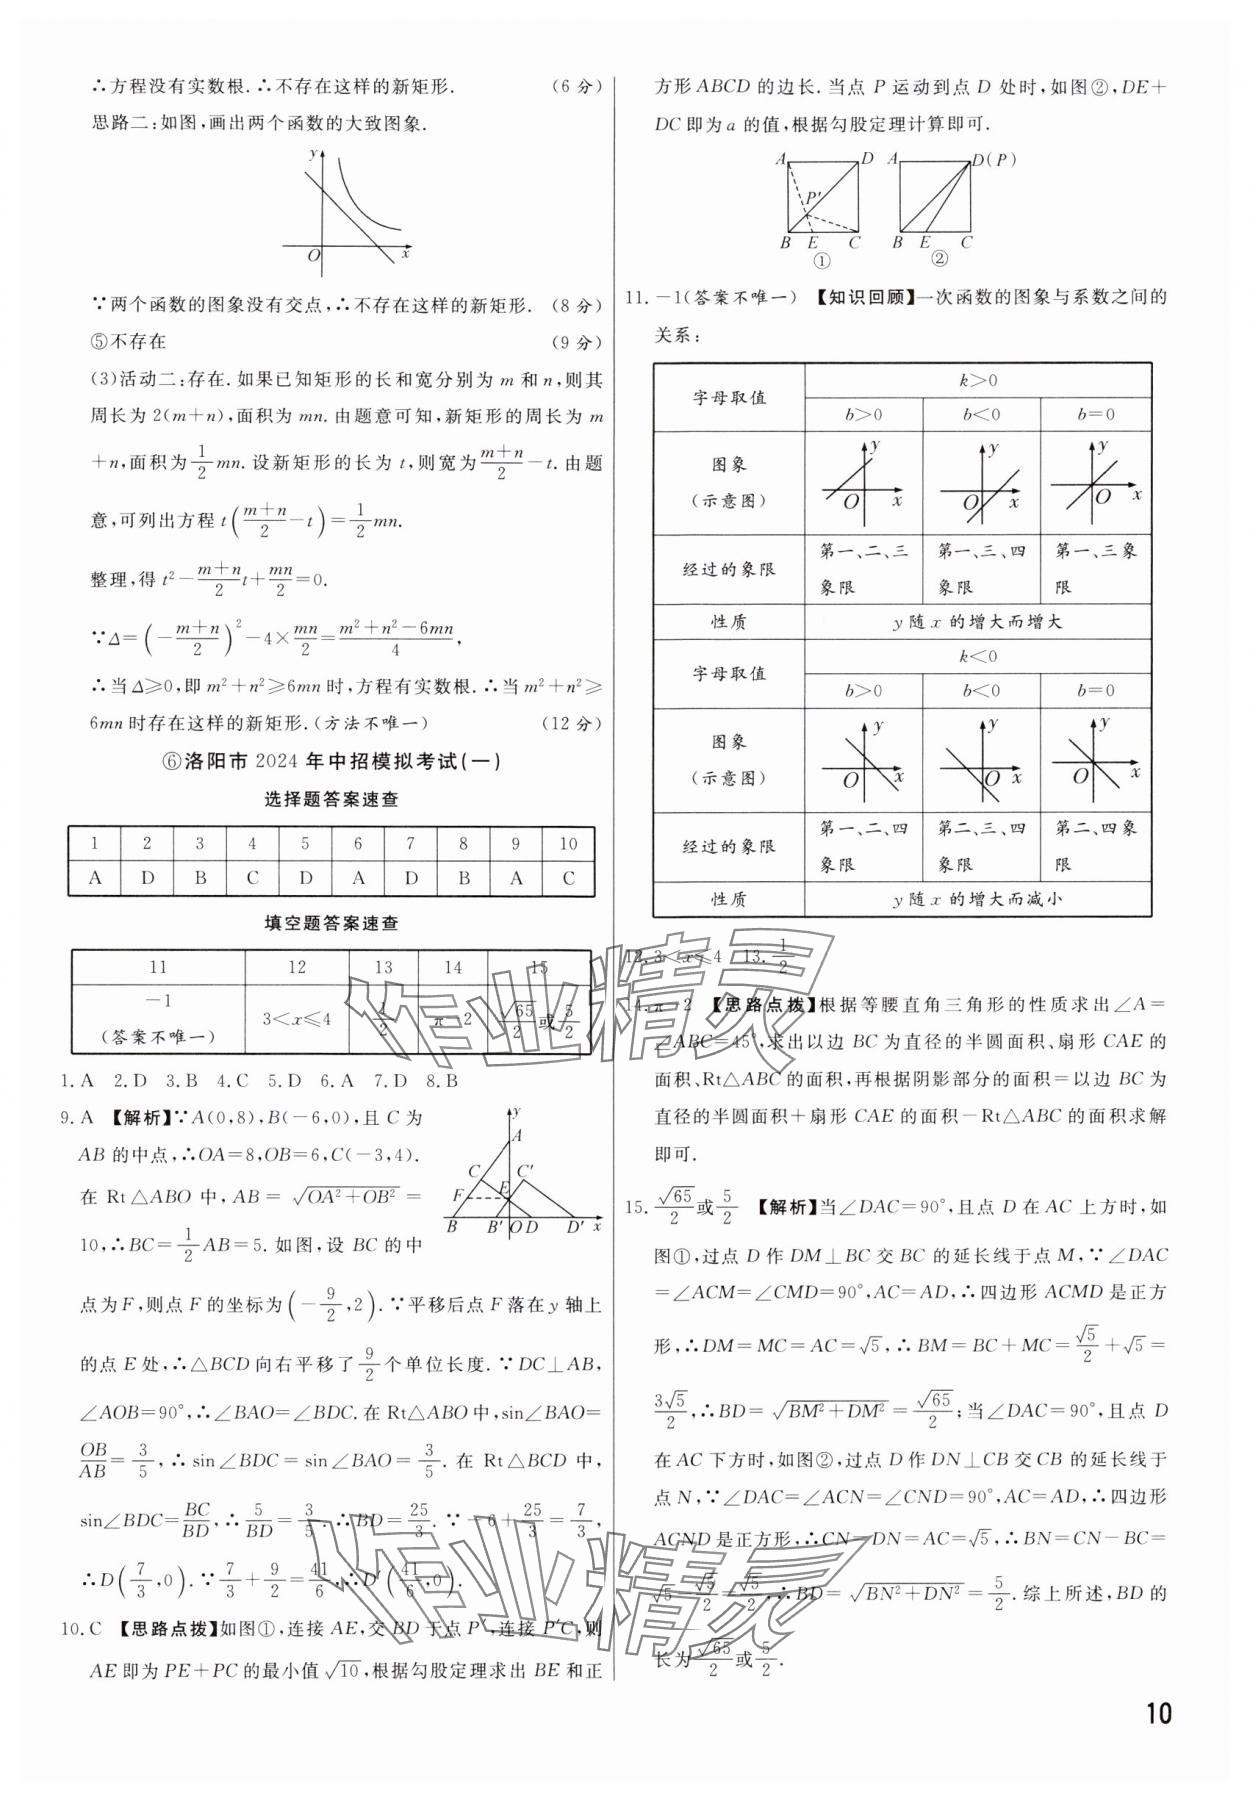 ∴方程没有实数根.∴不存在这样的新矩形. (6 分)
思路二:如图,画出两个函数的大致图象.
y
O x
∵两个函数的图象没有交点,∴不存在这样的新矩形. (8 分)
⑤不存在 (9 分)
(3)活动二:存在.如果已知矩形的长和宽分别为 m 和 n,则其
周长为 2(m+n),面积为 mn.由题意可知,新矩形的周长为 m
+n,面积为 1/2 mn.设新矩形的长为 t,则宽为 (m+n)/2 -t.由题
意,可列出方程 t((m+n)/2 -t)=1/2 mn.
整理,得 t²-(m+n)/2 t+mn/2=0.
∵Δ=(-(m+n)/2)²-4×mn/2=(m²+n²-6mn)/4,
∴当 Δ≥0,即 m²+n²≥6mn 时,方程有实数根.∴当 m²+n²≥
6mn 时存在这样的新矩形.(方法不唯一) (12 分)
⑥洛阳市 2024 年中招模拟考试(一)
选择题答案速查
1 2 3 4 5 6 7 8 9 10
A D B C D A D B A C
填空题答案速查
11 12 13 14 15
-1 (答案不唯一) 3<x≤4 1/2 π-2 √65/2 或 5/2
1.A 2.D 3.B 4.C 5.D 6.A 7.D 8.B
9.A 【解析】∵A(0,8),B(-6,0),且 C 为
AB 的中点,∴OA=8,OB=6,C(-3,4).
在 Rt△ABO 中,AB=√(OA²+OB²)=
10,∴BC=1/2 AB=5.如图,设 BC 的中
y
A
C C'
F E
B B' O D D' x
点为 F,则点 F 的坐标为(-9/2,2).∵平移后点 F 落在 y 轴上
的点 E 处,∴△BCD 向右平移了 9/2 个单位长度.∵DC⊥AB,
∠AOB=90°,∴∠BAO=∠BDC.在 Rt△ABO 中,sin∠BAO=
OB/AB=3/5,∴sin∠BDC=sin∠BAO=3/5.在 Rt△BCD 中,
sin∠BDC=BC/BD,∴5/BD=3/5.∴BD=25/3.∵-6+25/3=7/3,
∴D(7/3,0).∵7/3+9/2=41/6,∴D'(41/6,0).
10.C 【思路点拨】如图①,连接 AE,交 BD 于点 P',连接 P'C,则
AE 即为 PE+PC 的最小值 √10,根据勾股定理求出 BE 和正
方形 ABCD 的边长.当点 P 运动到点 D 处时,如图②,DE+
DC 即为 a 的值,根据勾股定理计算即可.
A D A D(P)
P'
B E C B E C
① ②
11.-1(答案不唯一) 【知识回顾】一次函数的图象与系数之间的
关系:
字母取值 k>0
b>0 b<0 b=0
图象
(示意图)
y O x y O x y O x
经过的象限 第一、二、三象限 第一、三、四象限 第一、三象限
性质 y 随 x 的增大而增大
字母取值 k<0
b>0 b<0 b=0
图象
(示意图)
y O x y O x y O x
经过的象限 第一、二、四象限 第二、三、四象限 第二、四象限
性质 y 随 x 的增大而减小
12.3<x≤4 13.1/2
14.π-2 【思路点拨】根据等腰直角三角形的性质求出∠A=
∠ABC=45°,求出以边 BC 为直径的半圆面积、扇形 CAE 的
面积、Rt△ABC 的面积,再根据阴影部分的面积=以边 BC 为
直径的半圆面积+扇形 CAE 的面积-Rt△ABC 的面积求解
即可.
15.√65/2 或 5/2 【解析】当∠DAC=90°,且点 D 在 AC 上方时,如
图①,过点 D 作 DM⊥BC 交 BC 的延长线于点 M,∵∠DAC
=∠ACM=∠CMD=90°,AC=AD,∴四边形 ACMD 是正方
形,∴DM=MC=AC=√5,∴BM=BC+MC=√5/2+√5=
3√5/2,∴BD=√(BM²+DM²)=√65/2;当∠DAC=90°,且点 D
在 AC 下方时,如图②,过点 D 作 DN⊥CB 交 CB 的延长线于
点 N,∵∠DAC=∠ACN=∠CND=90°,AC=AD,∴四边形
ACND 是正方形,∴CN=DN=AC=√5,∴BN=CN-BC=
√5-√5/2=√5/2,∴BD=√(BN²+DN²)=5/2.综上所述,BD 的
长为 √65/2 或 5/2.
作业精灵
作业精灵
10